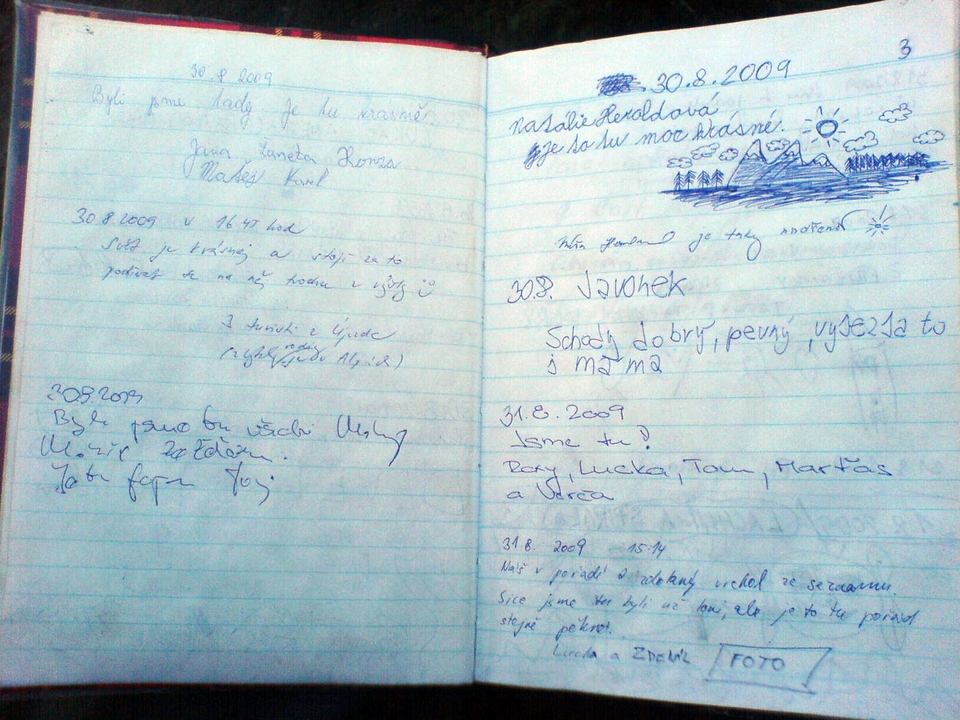 30.8 2009
Byli jsme tady je tu krásně.
Jana Žaneta Honza
Matěj Karel
30 8 2009 v 16 45 hod
Svět je krásnej a stojí za to
podívat se na něj trochu z výšky
3 turisti z
30 8 2009
Byli jsme tu všichni
Je tu fajn
3
30.8.2009
Natálie Heroldová
je to tu moc krásné.
je taky nadšená
30.8. Javorek
Schody dobrý, pevný, vylezla to
i máma
31.8.2009
Jsme tu?
Rony, Lucka, Tom, Marťas
a Verča
31 8. 2009 15:14
Náš v pořadí 2. zdolaný vrchol ze seznamu.
Sice jsme tu byli už loni, ale je to tu pořád
stejně pěkné!
Lucka a Zdeněk FOTO